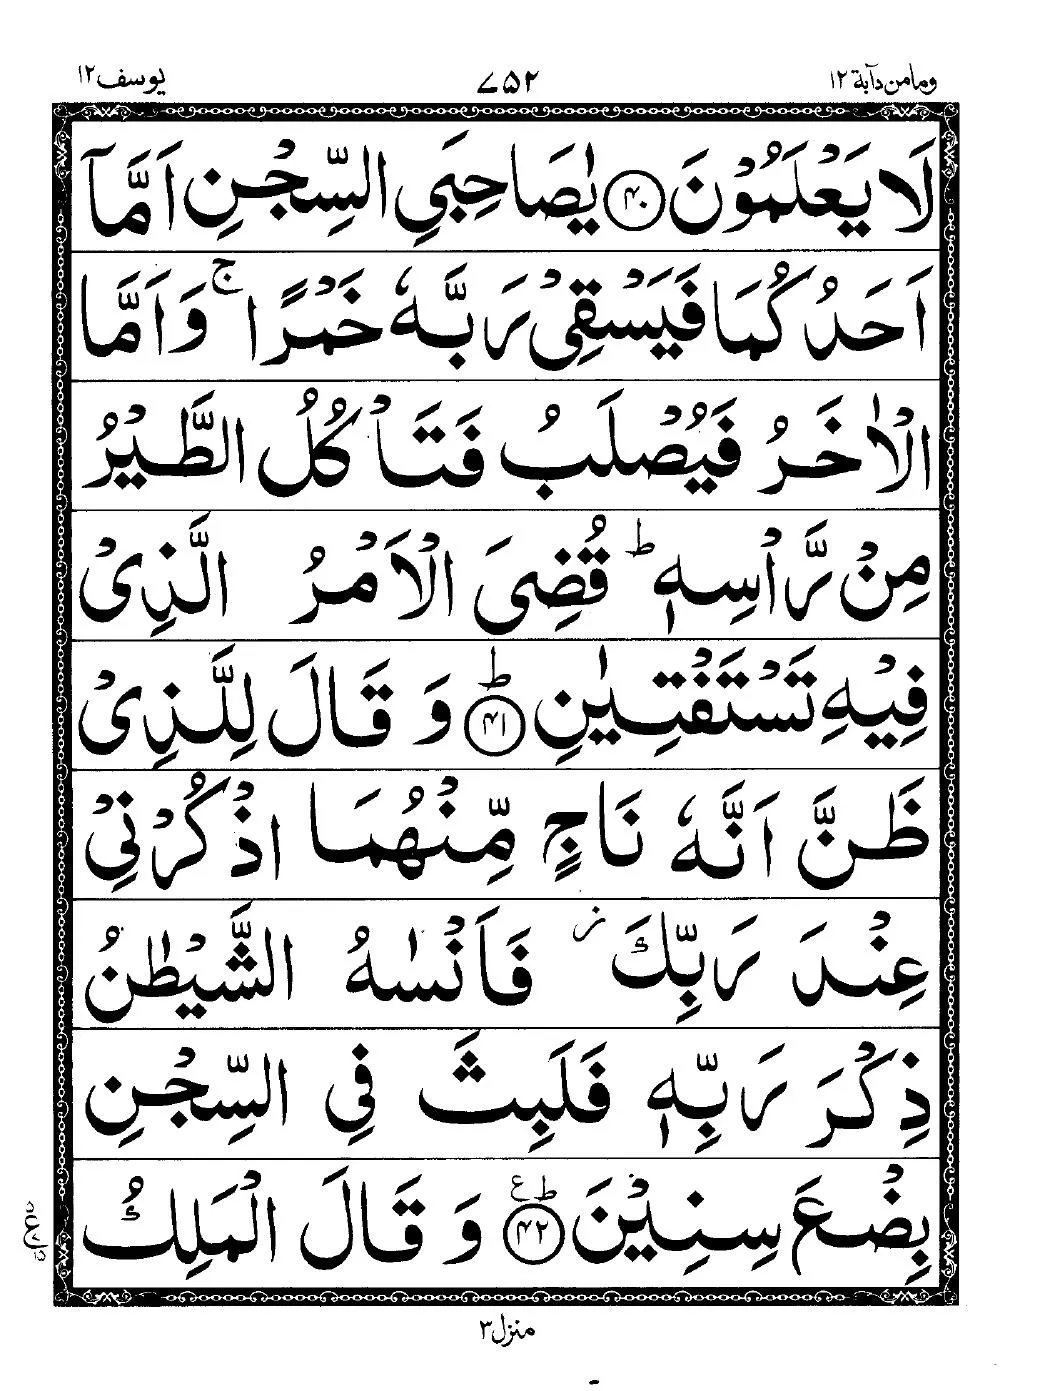 وما من دآبة ۱۲ ۷۵۲ یوسف ۱۲
لَا یَعْلَمُوْنَ ﴿۴۰﴾ یٰصَاحِبَیِ السِّجْنِ اَمَّاۤ
اَحَدُكُمَا فَیَسْقِیْ رَبَّهٗ خَمْرًا ۚ وَاَمَّا
الْاٰخَرُ فَیُصْلَبُ فَتَاْكُلُ الطَّیْرُ
مِنْ رَّاْسِهٖ ؕ قُضِیَ الْاَمْرُ الَّذِیْ
فِیْهِ تَسْتَفْتِیٰنِ ﴿۴۱﴾ؕ وَ قَالَ لِلَّذِیْ
ظَنَّ اَنَّهٗ نَاجٍ مِّنْهُمَا اذْكُرْنِیْ
عِنْدَ رَبِّكَ ز فَاَنْسٰىهُ الشَّیْطٰنُ
ذِكْرَ رَبِّهٖ فَلَبِثَ فِی السِّجْنِ
بِضْعَ سِنِیْنَ ﴿۴۲﴾ؕ ع وَ قَالَ الْمَلِكُ
منزل ۳